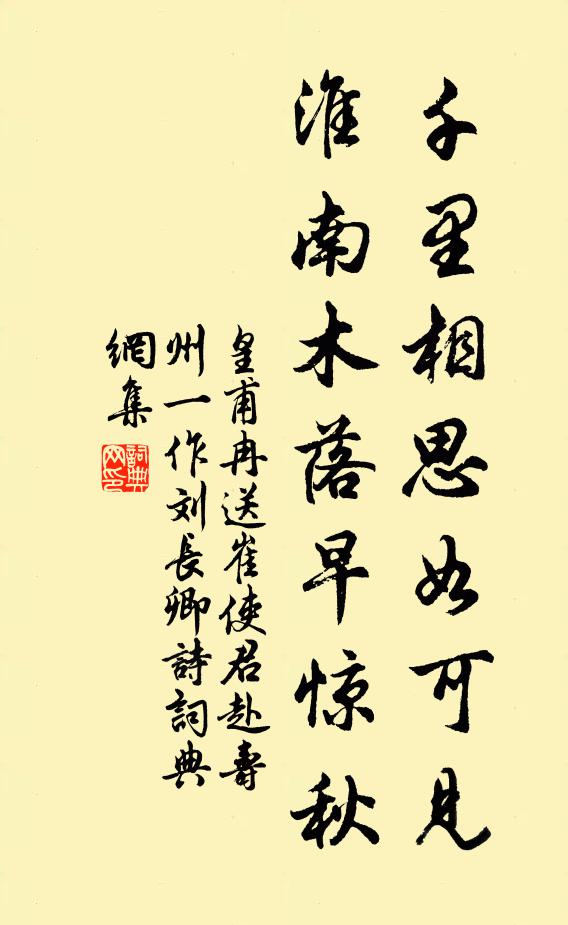 千里相思如可見
淮南木落早惊秋
皇甫冉送崔使君赴壽
州一作刘長卿詩詞典
網集
詞典网印